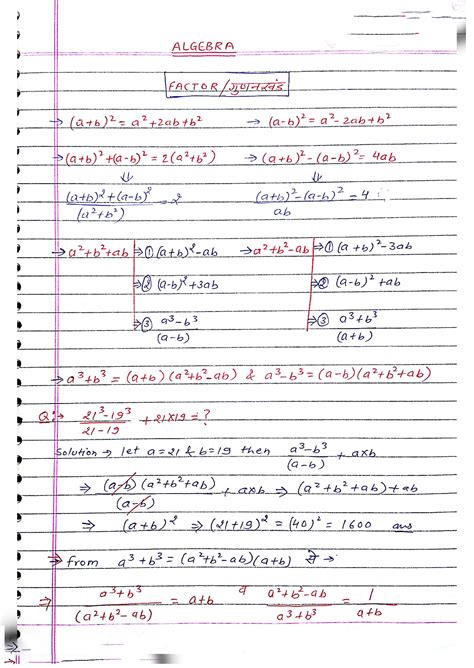 ALGEBRA
FACTOR/गुणनखंड
→ (a+b)² = a²+2ab+b² → (a-b)² = a²-2ab+b²
→ (a+b)²+(a-b)² = 2(a²+b²) → (a+b)²-(a-b)² = 4ab
⇓ ⇓
(a+b)²+(a-b)²/(a²+b²) = 2 (a+b)²-(a-b)²/ab = 4
→ a²+b²+ab ⇒① (a+b)²-ab → a²+b²-ab ⇒① (a+b)²-3ab
⇒② (a-b)²+3ab ⇒② (a-b)²+ab
⇒③ a³-b³/(a-b) ⇒③ a³+b³/(a+b)
→ a³+b³ = (a+b)(a²+b²-ab) & a³-b³ = (a-b)(a²+b²+ab)
Q:→ 21³-19³/21-19 + 21×19 = ?
Solution → let a=21 & b=19 then a³-b³/(a-b) + a×b
⇒ (a-b)(a²+b²+ab)/(a-b) + a×b ⇒ (a²+b²+ab)+ab
⇒ (a+b)² ⇒ (21+19)² = (40)² = 1600 ans
⇒ from a³+b³ = (a²+b²-ab)(a+b) से →
⇒ a³+b³/(a²+b²-ab) = a+b व a²+b²-ab/a³+b³ = 1/a+b